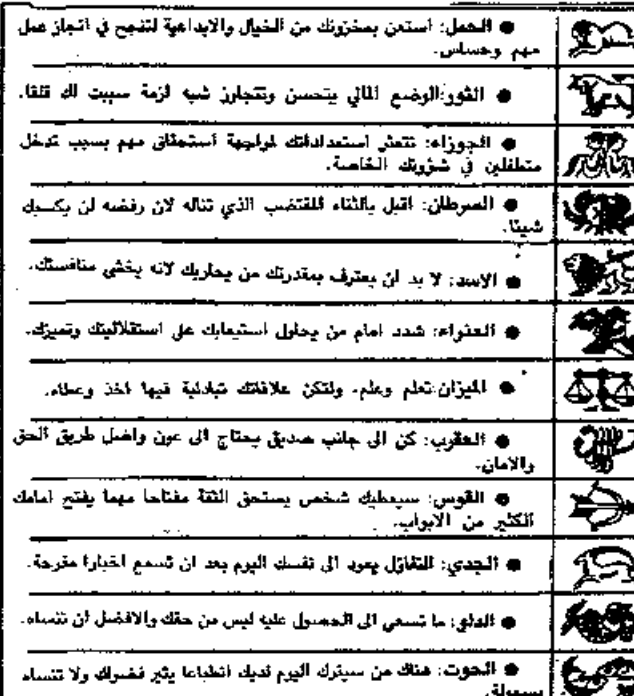 ● الحمل: استعن بمخزونك من الخيال والابداعية لتنجح في انجاز عمل
مهم وحساس.
● الثور:الوضع المالي يتحسن وتتجاوز شبه ازمة سببت لك قلقا.
● الجوزاء: تتعثر استعداداتك لمواجهة استحقاق مهم بسبب تدخل
متطفلين في شؤونك الخاصة.
● السرطان: اقبل بالثناء المقتضب الذي تناله لان رفضه لن يكسبك
شيئا.
● الاسد: لا بد ان يعترف بمقدرتك من يحاربك لانه يخشى منافستك.
● العذراء: شدد امام من يحاول استيعابك على استقلاليتك وتميزك.
● الميزان:تعلم وعلم، ولتكن علاقاتك تبادلية فيها اخذ وعطاء.
● العقرب: كن الى جانب صديق يحتاج الى عون واصل طريق الحق
والامان.
● القوس: سيعطيك شخص يستحق الثقة مفتاحا مهما يفتح امامك
الكثير من الابواب.
● الجدي: التفاؤل يعود الى نفسك اليوم بعد ان تسمع اخبارا مفرحة.
● الدلو: ما تسعى الى الحصول عليه ليس من حقك والافضل ان تنساه.
● الحوت: هناك من سيترك اليوم لديك انطباعا يثير فضولك ولا تنساه
بسهولة.